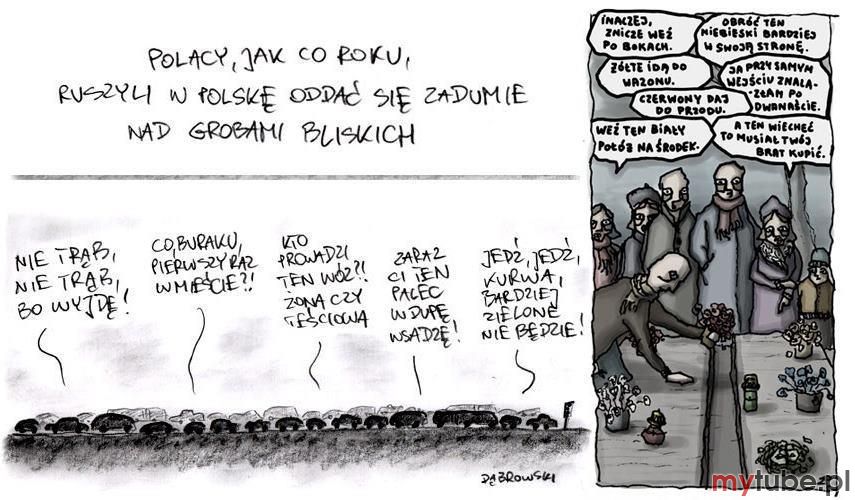 POLACY, JAK CO ROKU,
RUSZYLI W POLSKĘ ODDAĆ SIĘ ZADUMIE
NAD GROBAMI BLISKICH
NIE TRĄB,
NIE TRĄB,
BO WYJDĘ!
CO, BURAKU,
PIERWSZY RAZ
W MIEŚCIE?!
KTO
PROWADZI
TEN WÓZ?!
ŻONA CZY
TEŚCIOWA
ZARAZ
CI TEN
PALEC
W DUPĘ
WSADZĘ!
JEDŹ, JEDŹ,
KURWA,
BARDZIEJ
ZIELONE
NIE BĘDZIE!
DĄBROWSKI
INACZEJ,
ZNICZE WEŹ
PO BOKACH.
OBRÓĆ TEN
NIEBIESKI BARDZIEJ
W SWOJĄ STRONĘ.
ŻÓŁTE IDĄ DO
WAZONU.
JA PRZY SAMYM
WEJŚCIU ZNALA-
ZŁAM PO
DWANAŚCIE.
CZERWONY DAJ
DO PRZODU.
WEŹ TEN BIAŁY
POŁÓŻ NA ŚRODEK.
A TEN WIECHEĆ
TO MUSIAŁ TWÓJ
BRAT KUPIĆ.
mytube.pl